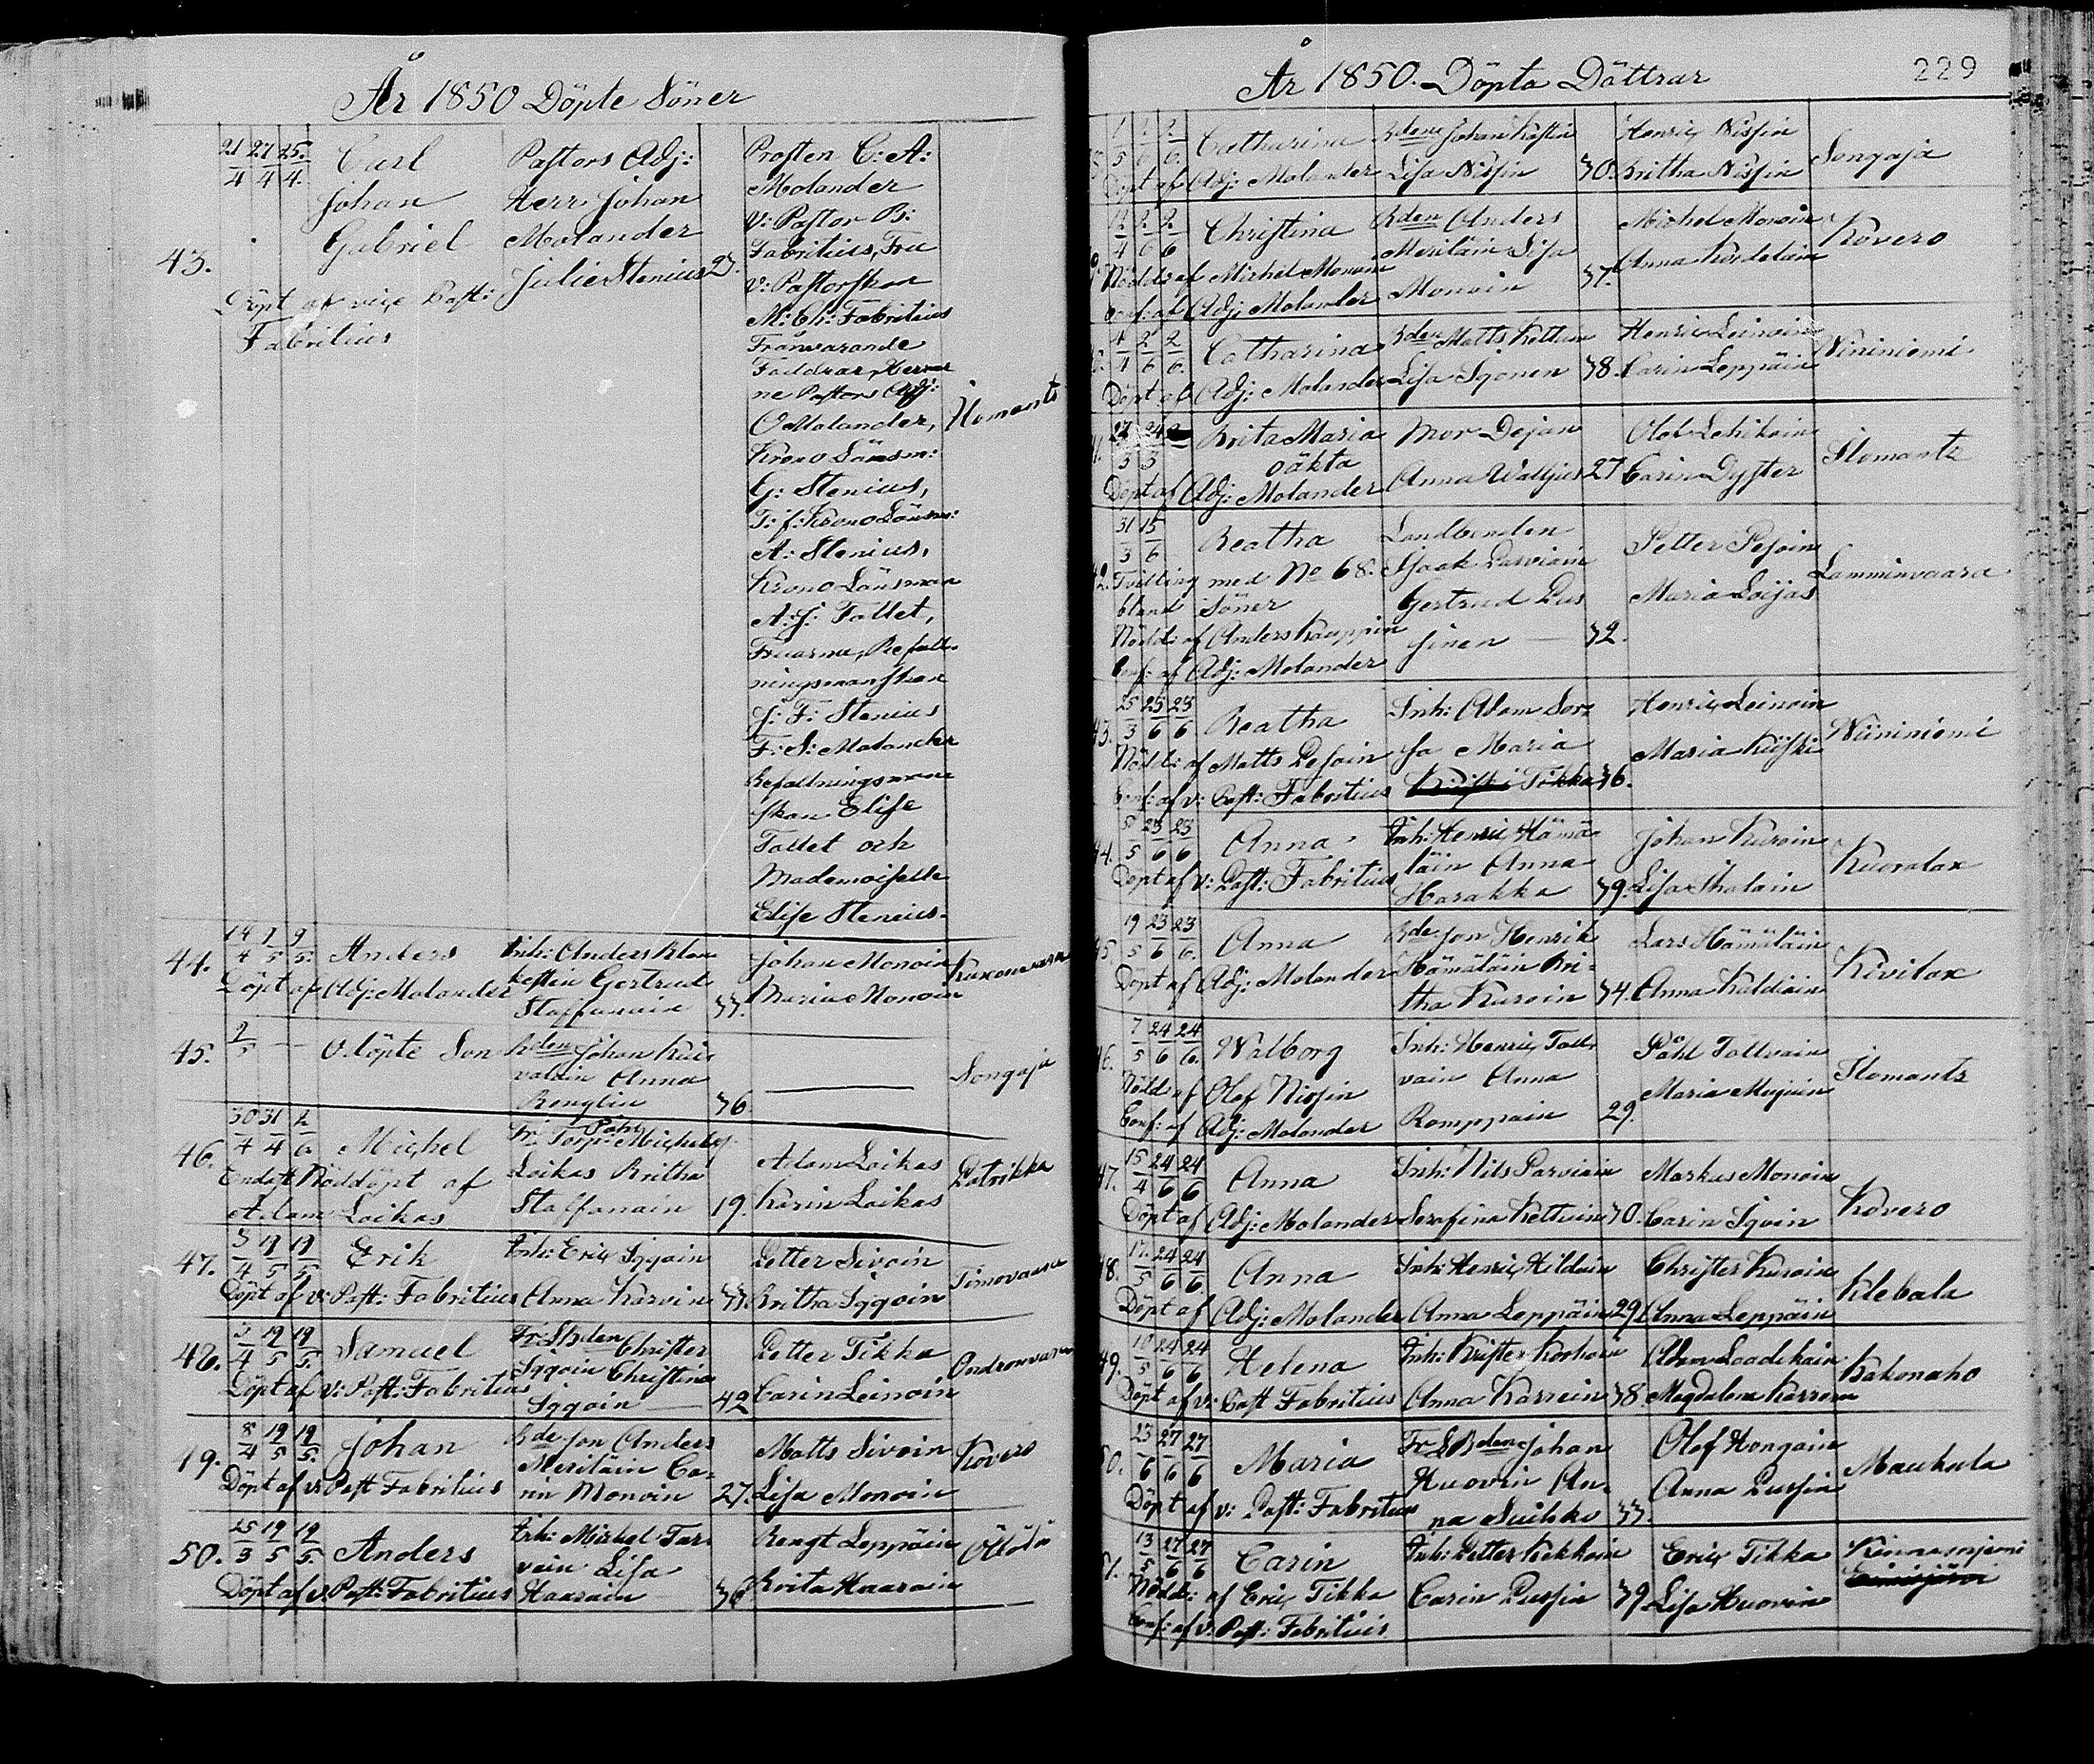 År 1850 Döpte Söner
43.
21/4 27/4 25/4.
Carl
Johan
Gabriel
Döpt af vice Past:
Fabritius
Pastors Adj:
Herr Johan
Molander
Julie Stenius 23.
Prosten C: A:
Molander
V: Pastor B:
Fabritius, Fru
v: Pastorskan
M: Ch: Fabritius
Frånvarande
Faddrar, Herrar
ne Pastors Adj:
O Molander,
Krono Länsm:
G: Stenius,
T: f: Krono Länsm:
A: Stenius,
Krono Länsman
A: J: Fattet,
Fruarna, Befall-
ningsmanskan
J: F: Stenius
F: S: Molander
Befallningsman
skan Elise
Fattet och
Mademoiselle
Elise Stenius.
Ilomants
44.
Anders
Döpt af Adj: Molander
Inh: Anders
Gertrud
Staffanain 33.
Johan Monoin
Maria Monoin
45.
2/5
Odöpte Son
Bden Johan
Anna
36
Songaja
46.
30/4 31/4
Michel
Endast Nöddöpt af
Adam Laikas
Fr: Torp: Michel
Laikas Britha
Staffanain 19.
Adam Laikas
Karin Laikas
Patrikka
47.
3/4 19/5 19/5
Erik
Döpt af v: Past: Fabritius
Inh: Eric Sygoin
Anna Karvin 33.
Petter Sivoin
Britha Sygoin
Timovaara
48.
3/4 19/5 19/5.
Samuel
Döpt af v: Past: Fabritius
Christer
Sygoin Christina
Sygoin 42
Petter Tikka
Carin Leinoin
49.
8/4 19/5 19/5.
Johan
Döpt af v: Past Fabritius
Bdeson Anders
Meriläin Ca-
rin Monoin 27.
Matts Sivoin
Lisa Monoin
Kovero
50.
25/3 19/5 19/5.
Anders
Döpt af v: Past: Fabritius
Inh: Michel Tar-
vain Lisa
Haarain 36
Bengt Leppäin
Brita Haarain
År 1850. Döpta Döttrar
229
1/5 2/6 2/6.
Catharina
Döpt af Adj: Molander
Bden Johan
Lisa Nissin 30.
Henric Nissin
Britha Nissin
Songaja
Christina
Nödd: af Michel Monoin
Conf: af Adj: Molander
Bden Anders
Meriläin Lisa
Monoin 37.
Michel Monoin
Anna
Kovero
4/4 2/6 2/6.
Catharina
Döpt af Adj: Molander
Bden Matts
Lisa Sqonen 38.
Henric Leinoin
Carin Leppäin
Niininiemi
Brita Maria
oäkta
Döpt af Adj: Molander
Mor Dejan
Anna Wallius 27
Olof Lehikoin
Carin Dyster
Ilomants
31/3 15/6
Beatha
Tvilling med No 68.
bland Söner
Nödd: af Anders Kauppin
Conf: af Adj: Molander
Landbonden
Isaak Parviain
Gertrud Pus
sinen 32.
Petter Pesoin
Maria Loijas
Lamminvaara
25/3 23/6 23/6
Beatha
Nödd: af Matts Pesoin
Conf: af v: Past: Fabritius
Inh: Adam Sor-
sa Maria
Tikka 36.
Henric Leinoin
Maria Kiiski
Niininiemi
5/5 23/6 23/6
Anna
Döpt af v: Past: Fabritius
Inh: Henric Hämä-
läin Anna
Harakka 39.
Johan Kuroin
Lisa Ikalain
Kuoralax
19/5 23/6 23/6.
Anna
Döpt af Adj: Molander
Bdeson Henrik
Hämäläin Bri-
tha Kuroin 34.
Lars Hämäläin
Anna
Kivilax
7/5 24/6 24/6.
Walborg
Nödd af Olof Nissin
Conf: af Adj: Molander
Inh: Henric Tolt-
vain Anna
Romppain 29.
Påhl Toltvain
Maria
Ilomants
47.
15/4 24/6 24/6
Anna
Döpt af Adj: Molander
Inh: Nils Parviain
Serafina 30.
Markus Monoin
Carin Sqoin
Kovero
48.
17/5 24/6 24/6.
Anna
Döpt af Adj: Molander
Inh: Henric
Anna Leppäin 29
Christer Kuroin
Anna Leppäin
Klebala
49.
10/5 24/6 24/6
Helena
Döpt af v: Past Fabritius
Inh: Krister Korhoin
Anna Karrein 38
Adam
Magdalena
Kakonaho
50.
23/6 27/6 27/6
Maria
Döpt af v: Past: Fabritius
Johan
Huovin An-
na Suihko 33.
Olof Hongain
Anna Pussin
Maukula
51.
13/5 27/6 27/6
Carin
Nödd: af Eric Tikka
Conf: af v: Past: Fabritius.
Inh: Petter Kekkoin
Carin Pussin 39
Eric Tikka
Lisa Huovin